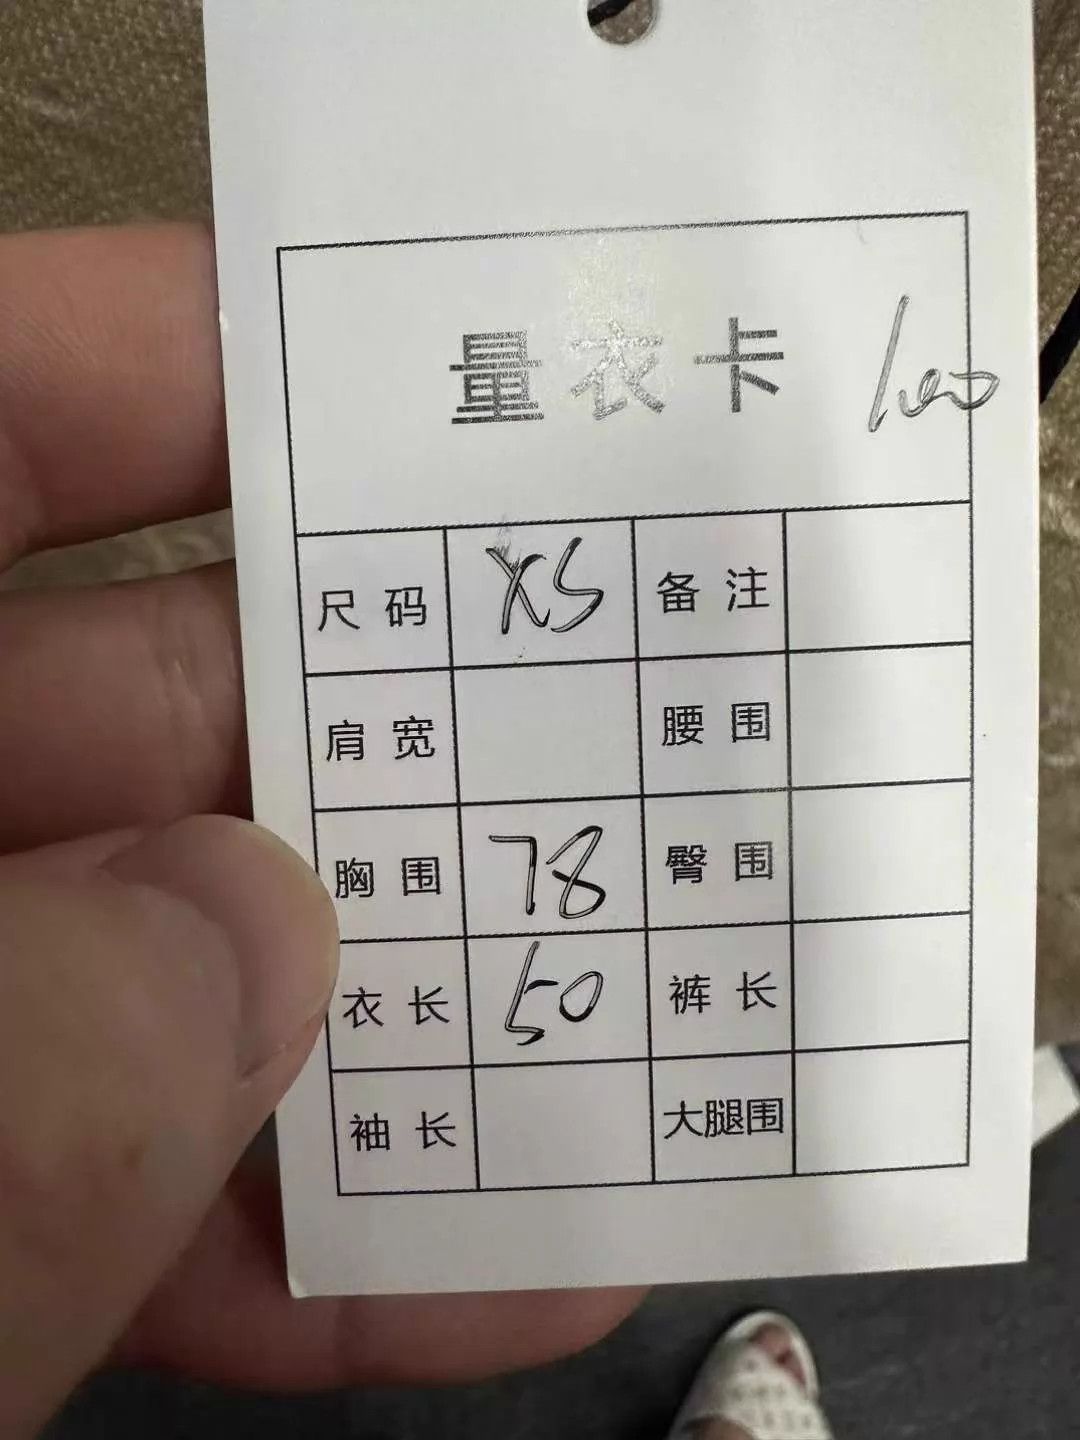 量衣卡 100
尺码 XS 备注
肩宽 腰围
胸围 78 臀围
衣长 50 裤长
袖长 大腿围